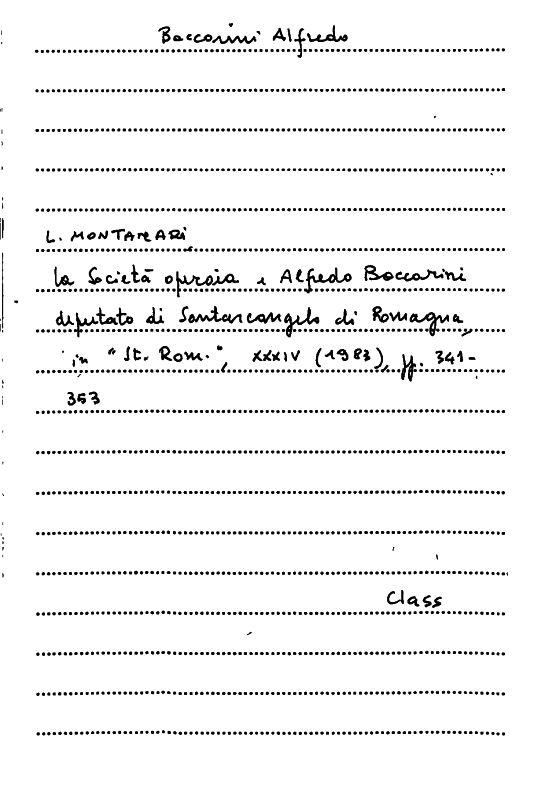 Baccarini Alfredo
L. MONTANARI,
la Società operaia e Alfredo Baccarini
deputato di Santarcangelo di Romagna,
in "St. Rom.", XXXIV (1983), pp. 341-
353
Class